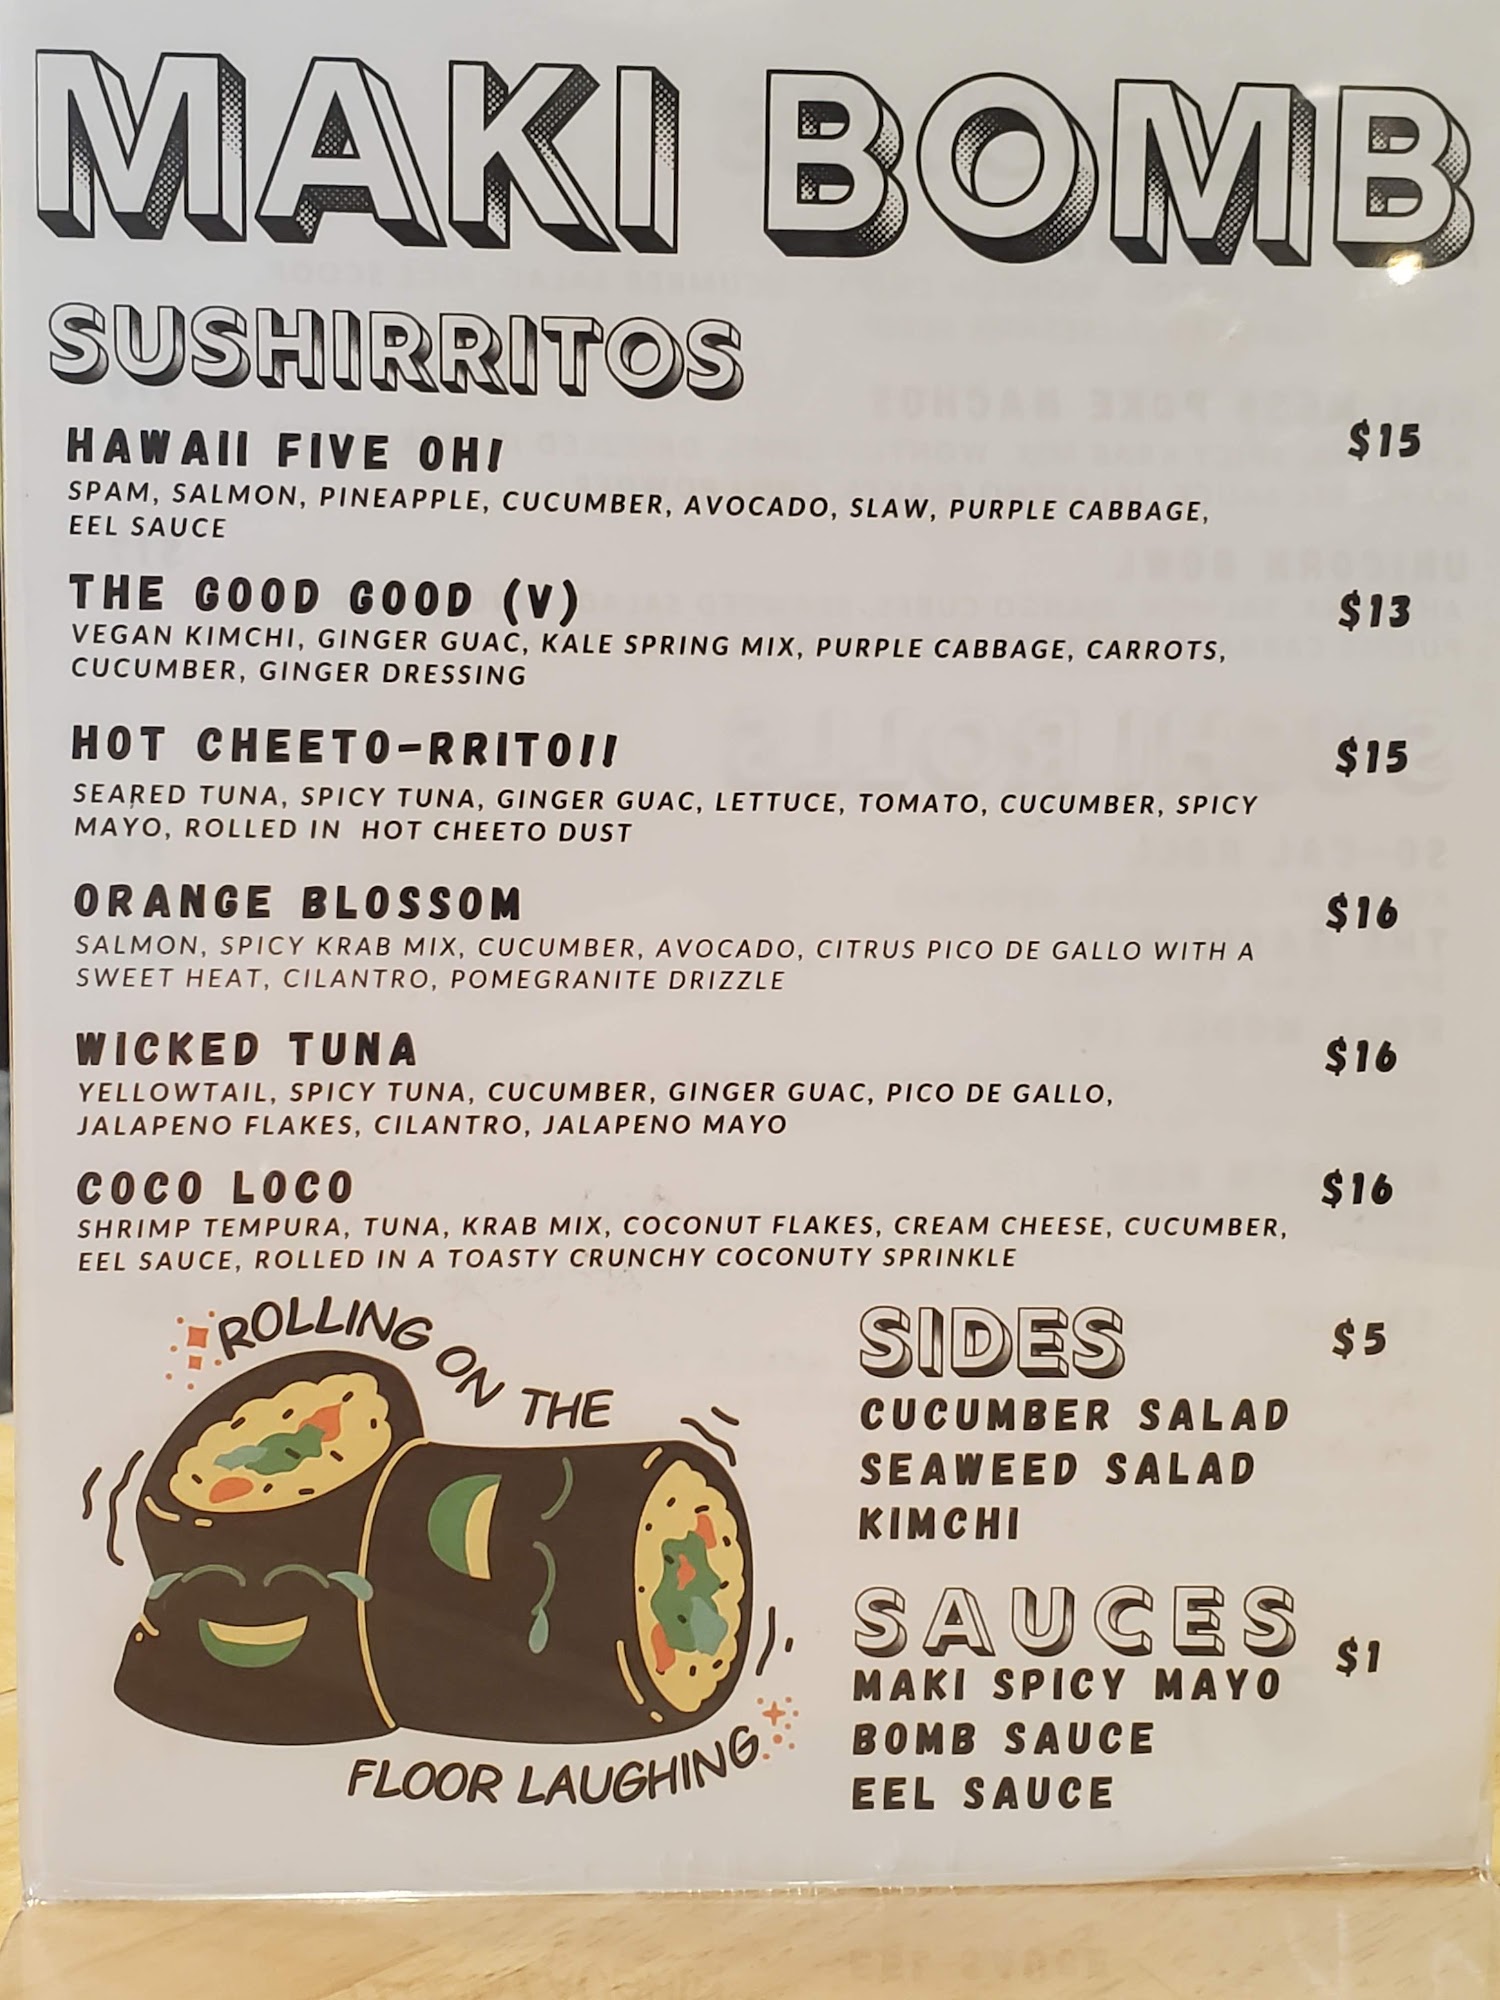 MAKI BOMB
SUSHIRRITOS
HAWAII FIVE OH! $15
SPAM, SALMON, PINEAPPLE, CUCUMBER, AVOCADO, SLAW, PURPLE CABBAGE,
EEL SAUCE
THE GOOD GOOD (V) $13
VEGAN KIMCHI, GINGER GUAC, KALE SPRING MIX, PURPLE CABBAGE, CARROTS,
CUCUMBER, GINGER DRESSING
HOT CHEETO-RRITO!! $15
SEARED TUNA, SPICY TUNA, GINGER GUAC, LETTUCE, TOMATO, CUCUMBER, SPICY
MAYO, ROLLED IN HOT CHEETO DUST
ORANGE BLOSSOM $16
SALMON, SPICY KRAB MIX, CUCUMBER, AVOCADO, CITRUS PICO DE GALLO WITH A
SWEET HEAT, CILANTRO, POMEGRANITE DRIZZLE
WICKED TUNA $16
YELLOWTAIL, SPICY TUNA, CUCUMBER, GINGER GUAC, PICO DE GALLO,
JALAPENO FLAKES, CILANTRO, JALAPENO MAYO
COCO LOCO $16
SHRIMP TEMPURA, TUNA, KRAB MIX, COCONUT FLAKES, CREAM CHEESE, CUCUMBER,
EEL SAUCE, ROLLED IN A TOASTY CRUNCHY COCONUTY SPRINKLE
ROLLING ON THE
FLOOR LAUGHING
SIDES $5
CUCUMBER SALAD
SEAWEED SALAD
KIMCHI
SAUCES $1
MAKI SPICY MAYO
BOMB SAUCE
EEL SAUCE